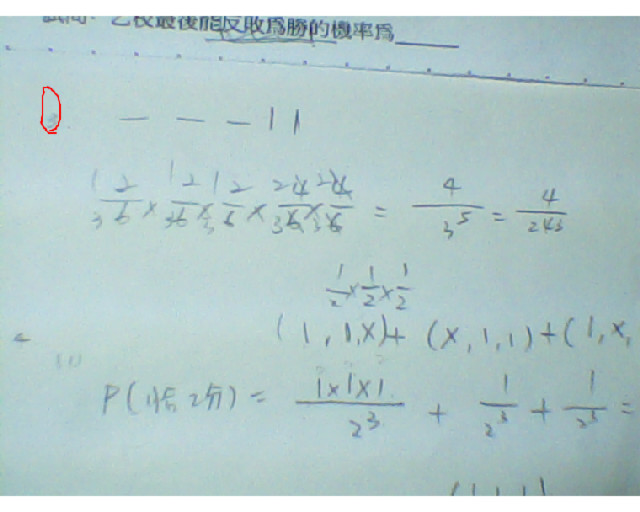 乙校最後能反敗為勝的機率為____
— — — 1 1
1/3 2/6 × 1/3 2/6 × 1/3 2/6 × 2/3 4/6 × 2/3 4/6 = 4/3^5 = 4/243
1/2 × 1/2 × 1/2
(1, 1, X) + (X, 1, 1) + (1, X,
P(恰2分) = 1×1×1/2^3 + 1/2^3 + 1/2^3 =